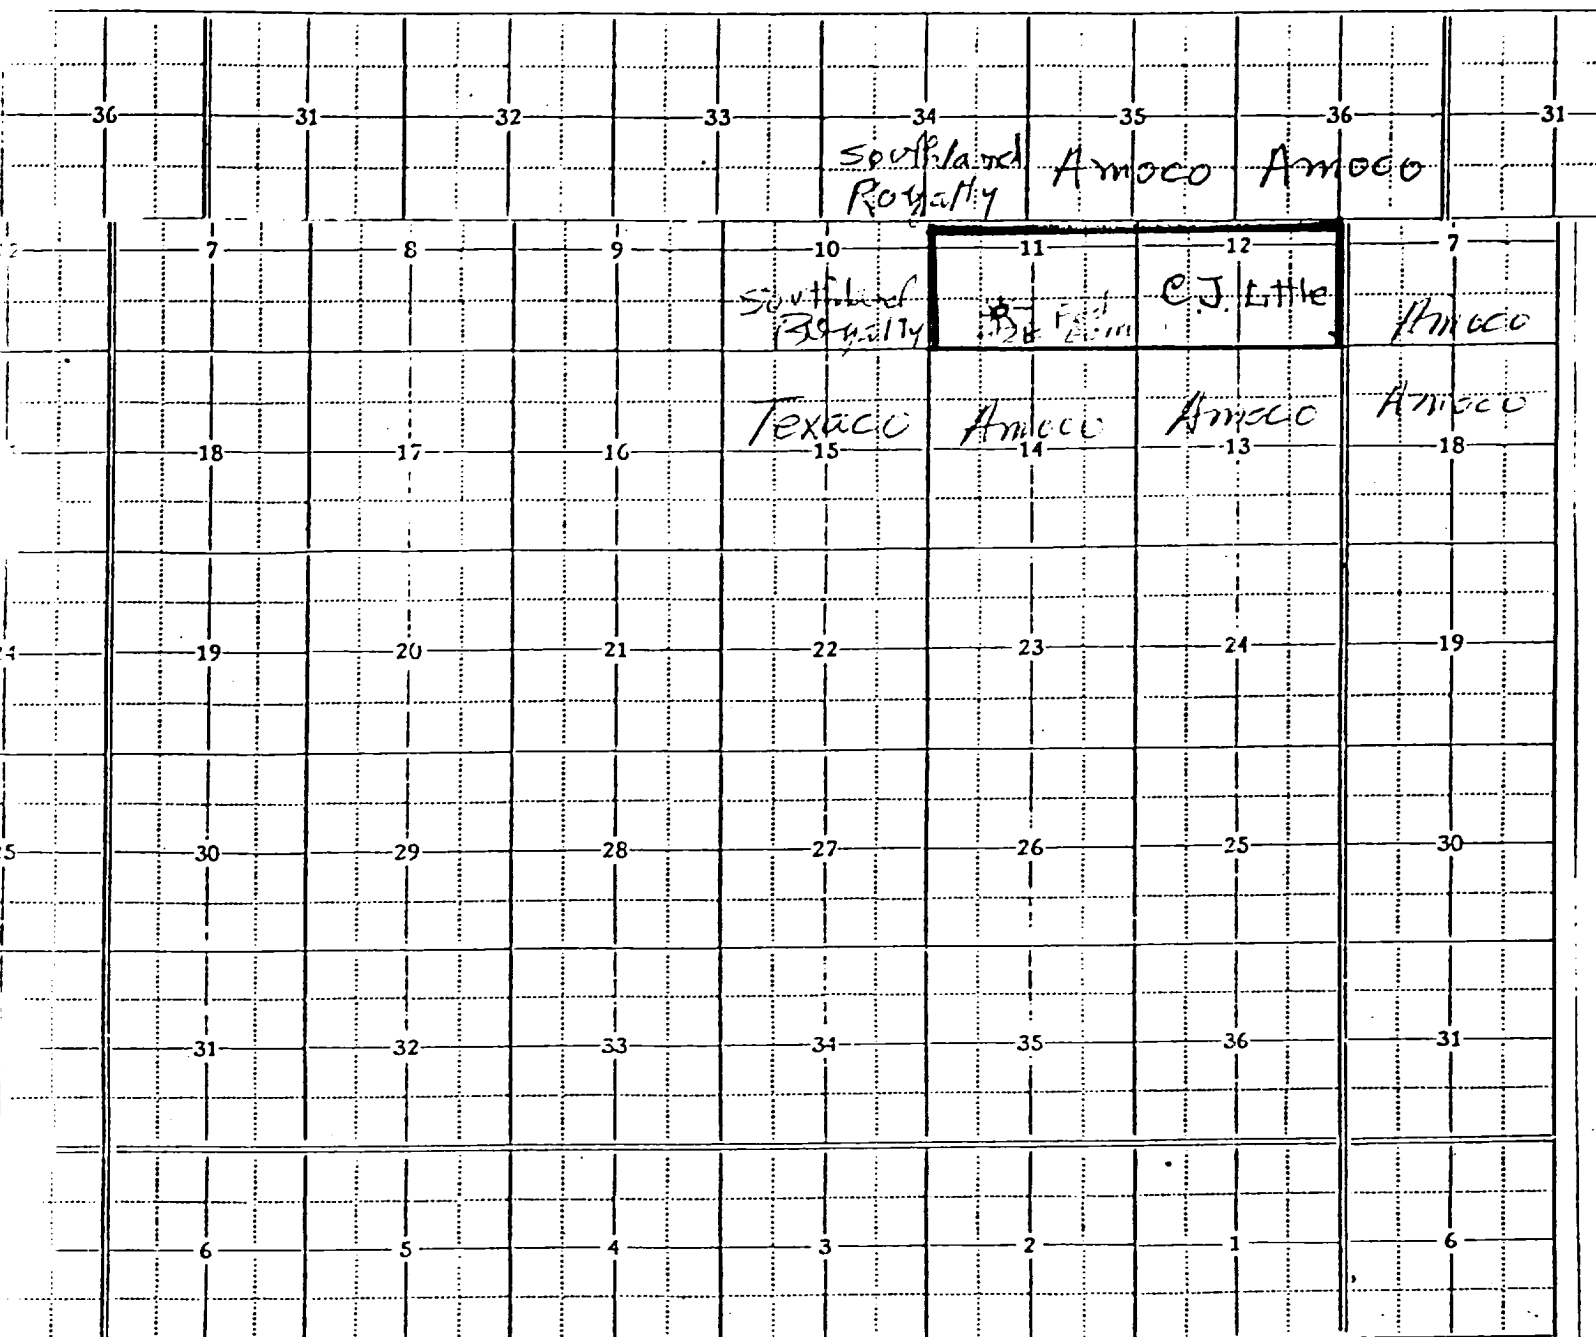 36 31 32 33 34 35 36 31
Southland Amoco Amoco
Royalty
7 8 9 10 11 12 7
Southland C.J. Little
Royalty Amoco
Texaco Amoco Amoco Amoco
18 17 16 15 14 13 18
19 20 21 22 23 24 19
30 29 28 27 26 25 30
31 32 33 34 35 36 31
6 5 4 3 2 1 6